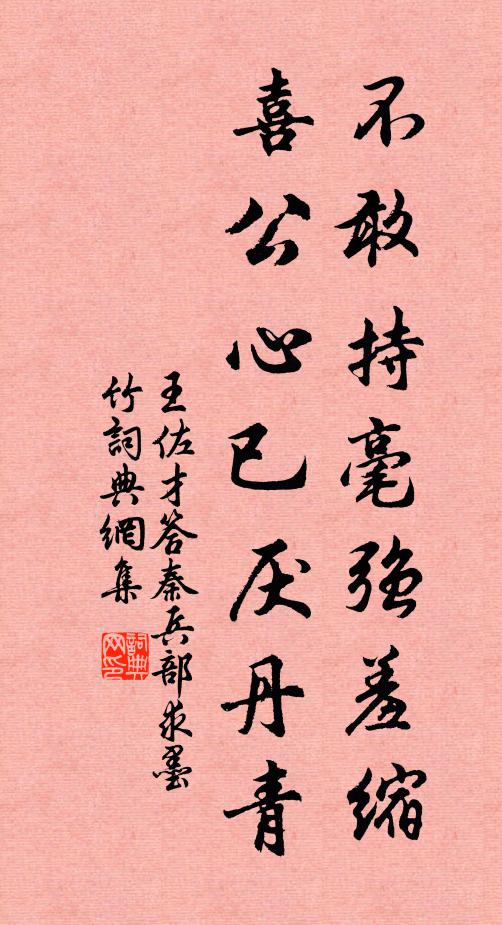 不敢持毫强羞缩
喜公心已厌丹青
王佐才答秦兵部求墨
竹詞典網集
詞典
网印